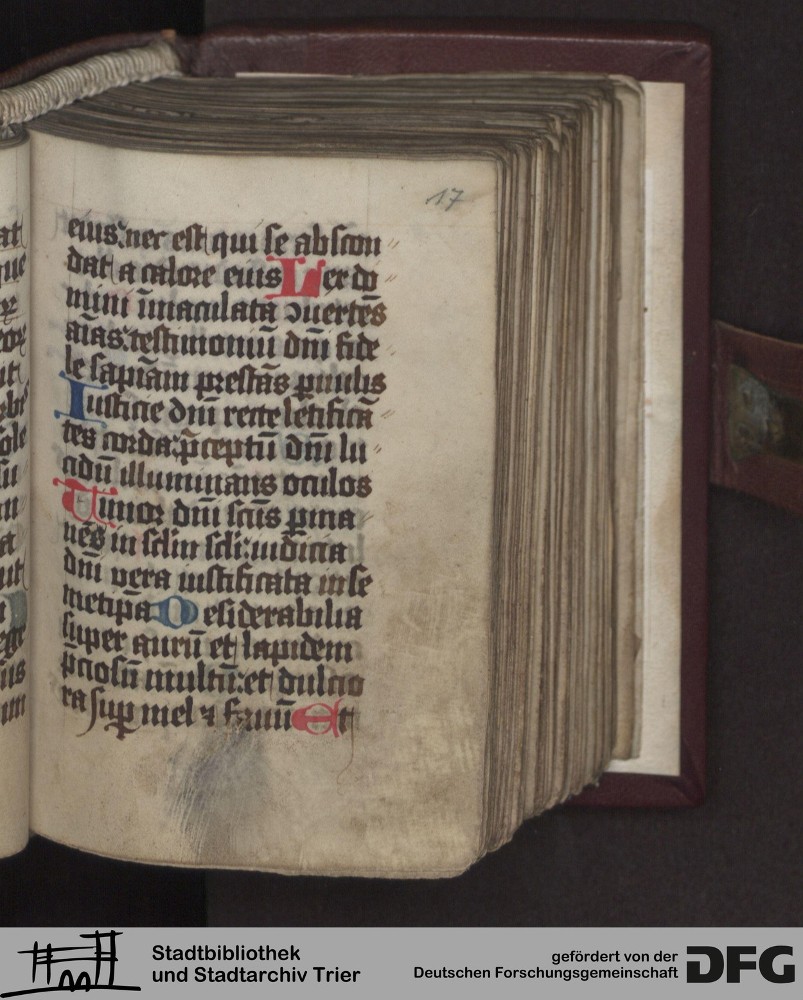 17
eius. nec est qui se abscon
dat a calore eius Lex do
mini īmaculata ɔuertēs
aīas. testimoniū dnī fide
le sapīam prestās puulis
Iusticie dnī recte letificā
tes corda. p̄ceptū dnī lu
cidū illuminans oculos
Timor dnī scūs pma
nēs in sclm scli: iudicia
dnī vera iustificata in se
metip̄a Desiderabilia
super aurū et lapidem
p̄ciosū multū: et dulcio
ra suꝑ mel ⁊ fauū Et
Stadtbibliothek
und Stadtarchiv Trier
gefördert von der
Deutschen Forschungsgemeinschaft
DFG